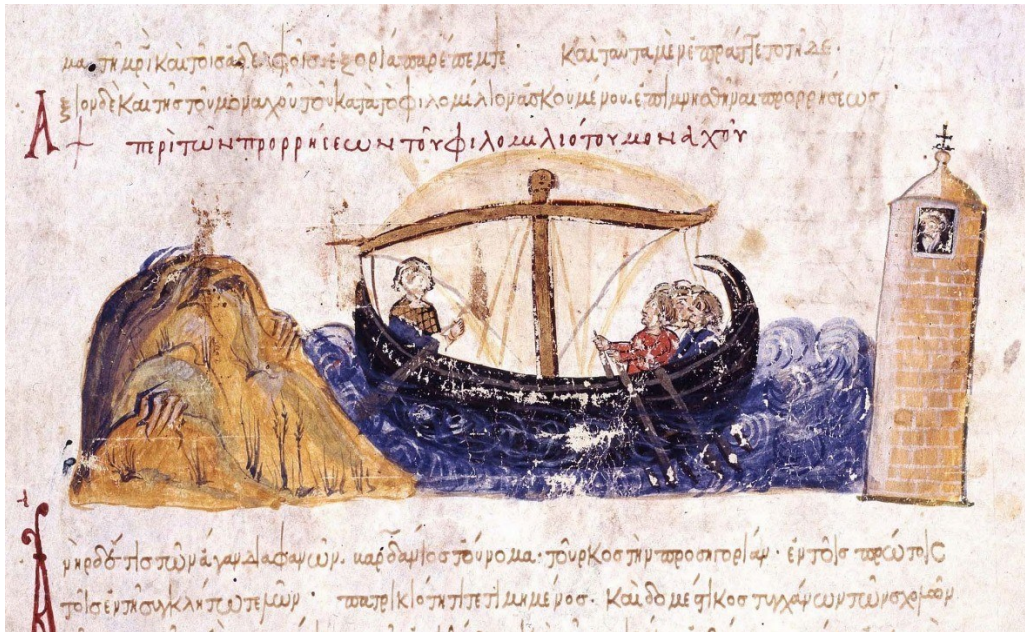 μα τῇ μρὶ καὶ τοῖς ἀδελφοῖς ἐξορία παρέπεμπε καὶ ταῦτα μὲν ἐπράττετο τῇδε·
Ἄξιον δὲ καὶ τῆς τοῦ μοναχοῦ τοῦ κατὰ τὸ φιλομίλιον ἀσκουμένου. ἐπιμνησθῆναι προρρήσεως
+ περὶ τῶν προρρήσεων τοῦ φιλομιλιότου μοναχοῦ
Ἀνὴρ δέ τις τῶν ἄγαν διαφανῶν. βαρδάνιος τοὔνομα· τοῦρκος τὴν προσηγορίαν· ἐν τοῖς πρώτοις
τοῖς ἐν τῆ συγκλήτω τελῶν· πατρικιότητι τετιμημένος. καὶ δομέστικος τυγχάνων τῶν σχολῶν